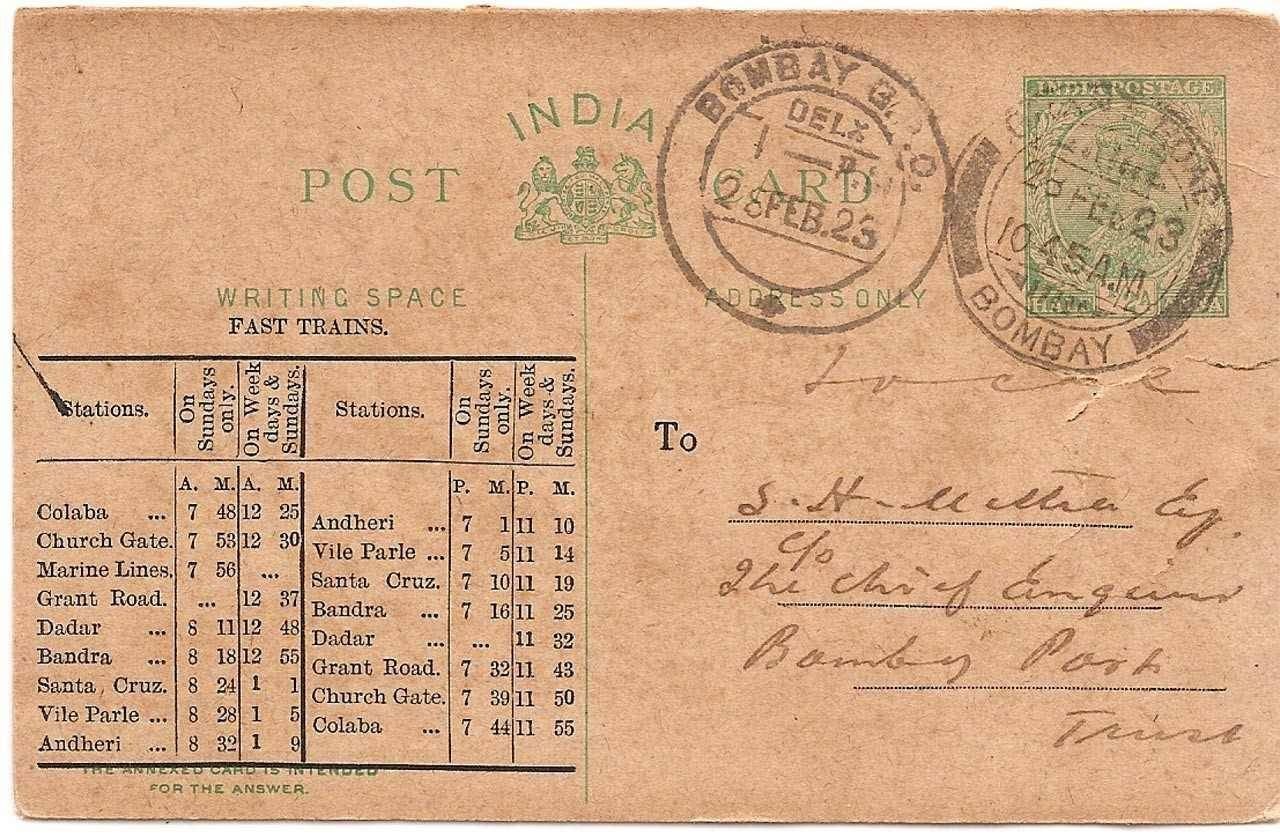 INDIA
POST CARD
WRITING SPACE
ADDRESS ONLY
FAST TRAINS.
Stations. On Sundays only. On Week days & Sundays. Stations. On Sundays only. On Week days & Sundays.
A. M. A. M.
Colaba ... 7 48 12 25
Church Gate. 7 53 12 30
Marine Lines. 7 56 ...
Grant Road. ... 12 37
Dadar ... 8 11 12 48
Bandra ... 8 18 12 55
Santa Cruz. 8 24 1 1
Vile Parle ... 8 28 1 5
Andheri ... 8 32 1 9
P. M. P. M.
Andheri ... 7 1 11 10
Vile Parle ... 7 5 11 14
Santa Cruz. 7 10 11 19
Bandra ... 7 16 11 25
Dadar ... ... 11 32
Grant Road. 7 32 11 43
Church Gate. 7 39 11 50
Colaba ... 7 44 11 55
THE ANNEXED CARD IS INTENDED
FOR THE ANSWER.
BOMBAY G.P.O.
DELY
28 FEB. 23
INDIA POSTAGE
28 FEB 23
10 45 A.M.
BOMBAY
HALF ANNA
To
S. H. Esq.
c/o
The Chief Engineer
Bombay Port
Trust